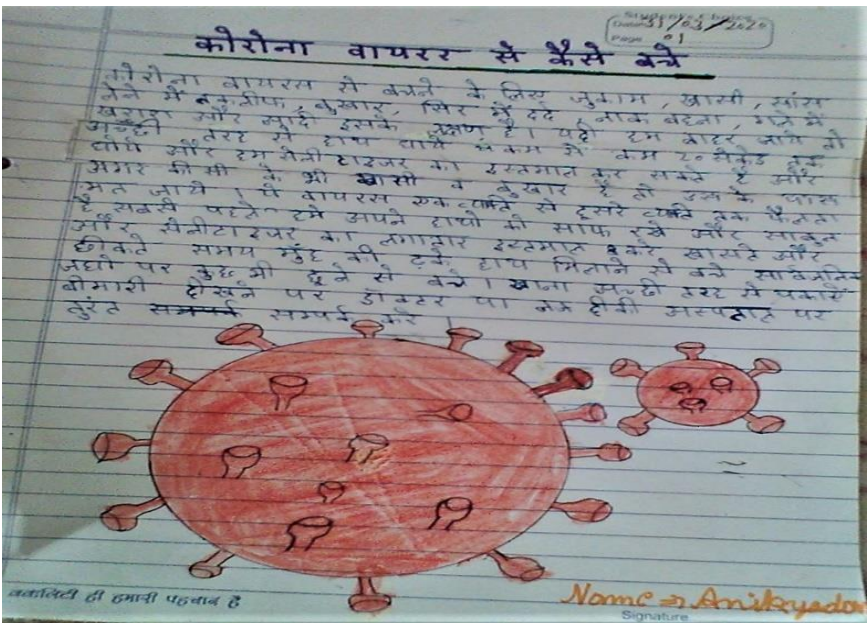 Student's Choice
Date 31/03/2020
Page 01
कोरोना वायरर से कैसे बचे
कोरोना वायरस से बचने के लिए जुकाम, खासी, सांस
लेने में तकलीफ, बुखार, सिर में दर्द, नाक बहना, गले में
खराश और सर्दी इसके लक्षण है। यदी हम बाहर जाये तो
अच्छी तरह से हाथ धोये कम से कम 20 सेकेंड तक
धोये और हम सेनीटाइजर का इस्तमाल कर सकते है और
अगर कीसी के भी खासी व बुखार है तो उस के पास
मत जाये। ये वायरस एक व्यक्ति से दूसरे व्यक्ति तक फैलता
है सबसे पहले हमे अपने हाथो को साफ रखे और साबुन
और सेनीटाइजर का लगातार इस्तमाल करे खासते और
छीकते समय मुंह को ढ़के हाथ मिलाने से बचे सार्वजनिक
जघो पर कुछ भी छूने से बचे। खाना अच्छी तरह से पकाये
बीमारी दीखने पर डॉक्टर या नजदीकी अस्पताल पर
तुरंत सम्पर्क करे।
क्वालिटी ही हमारी पहचान है
Name => Anilkyadav
Signature